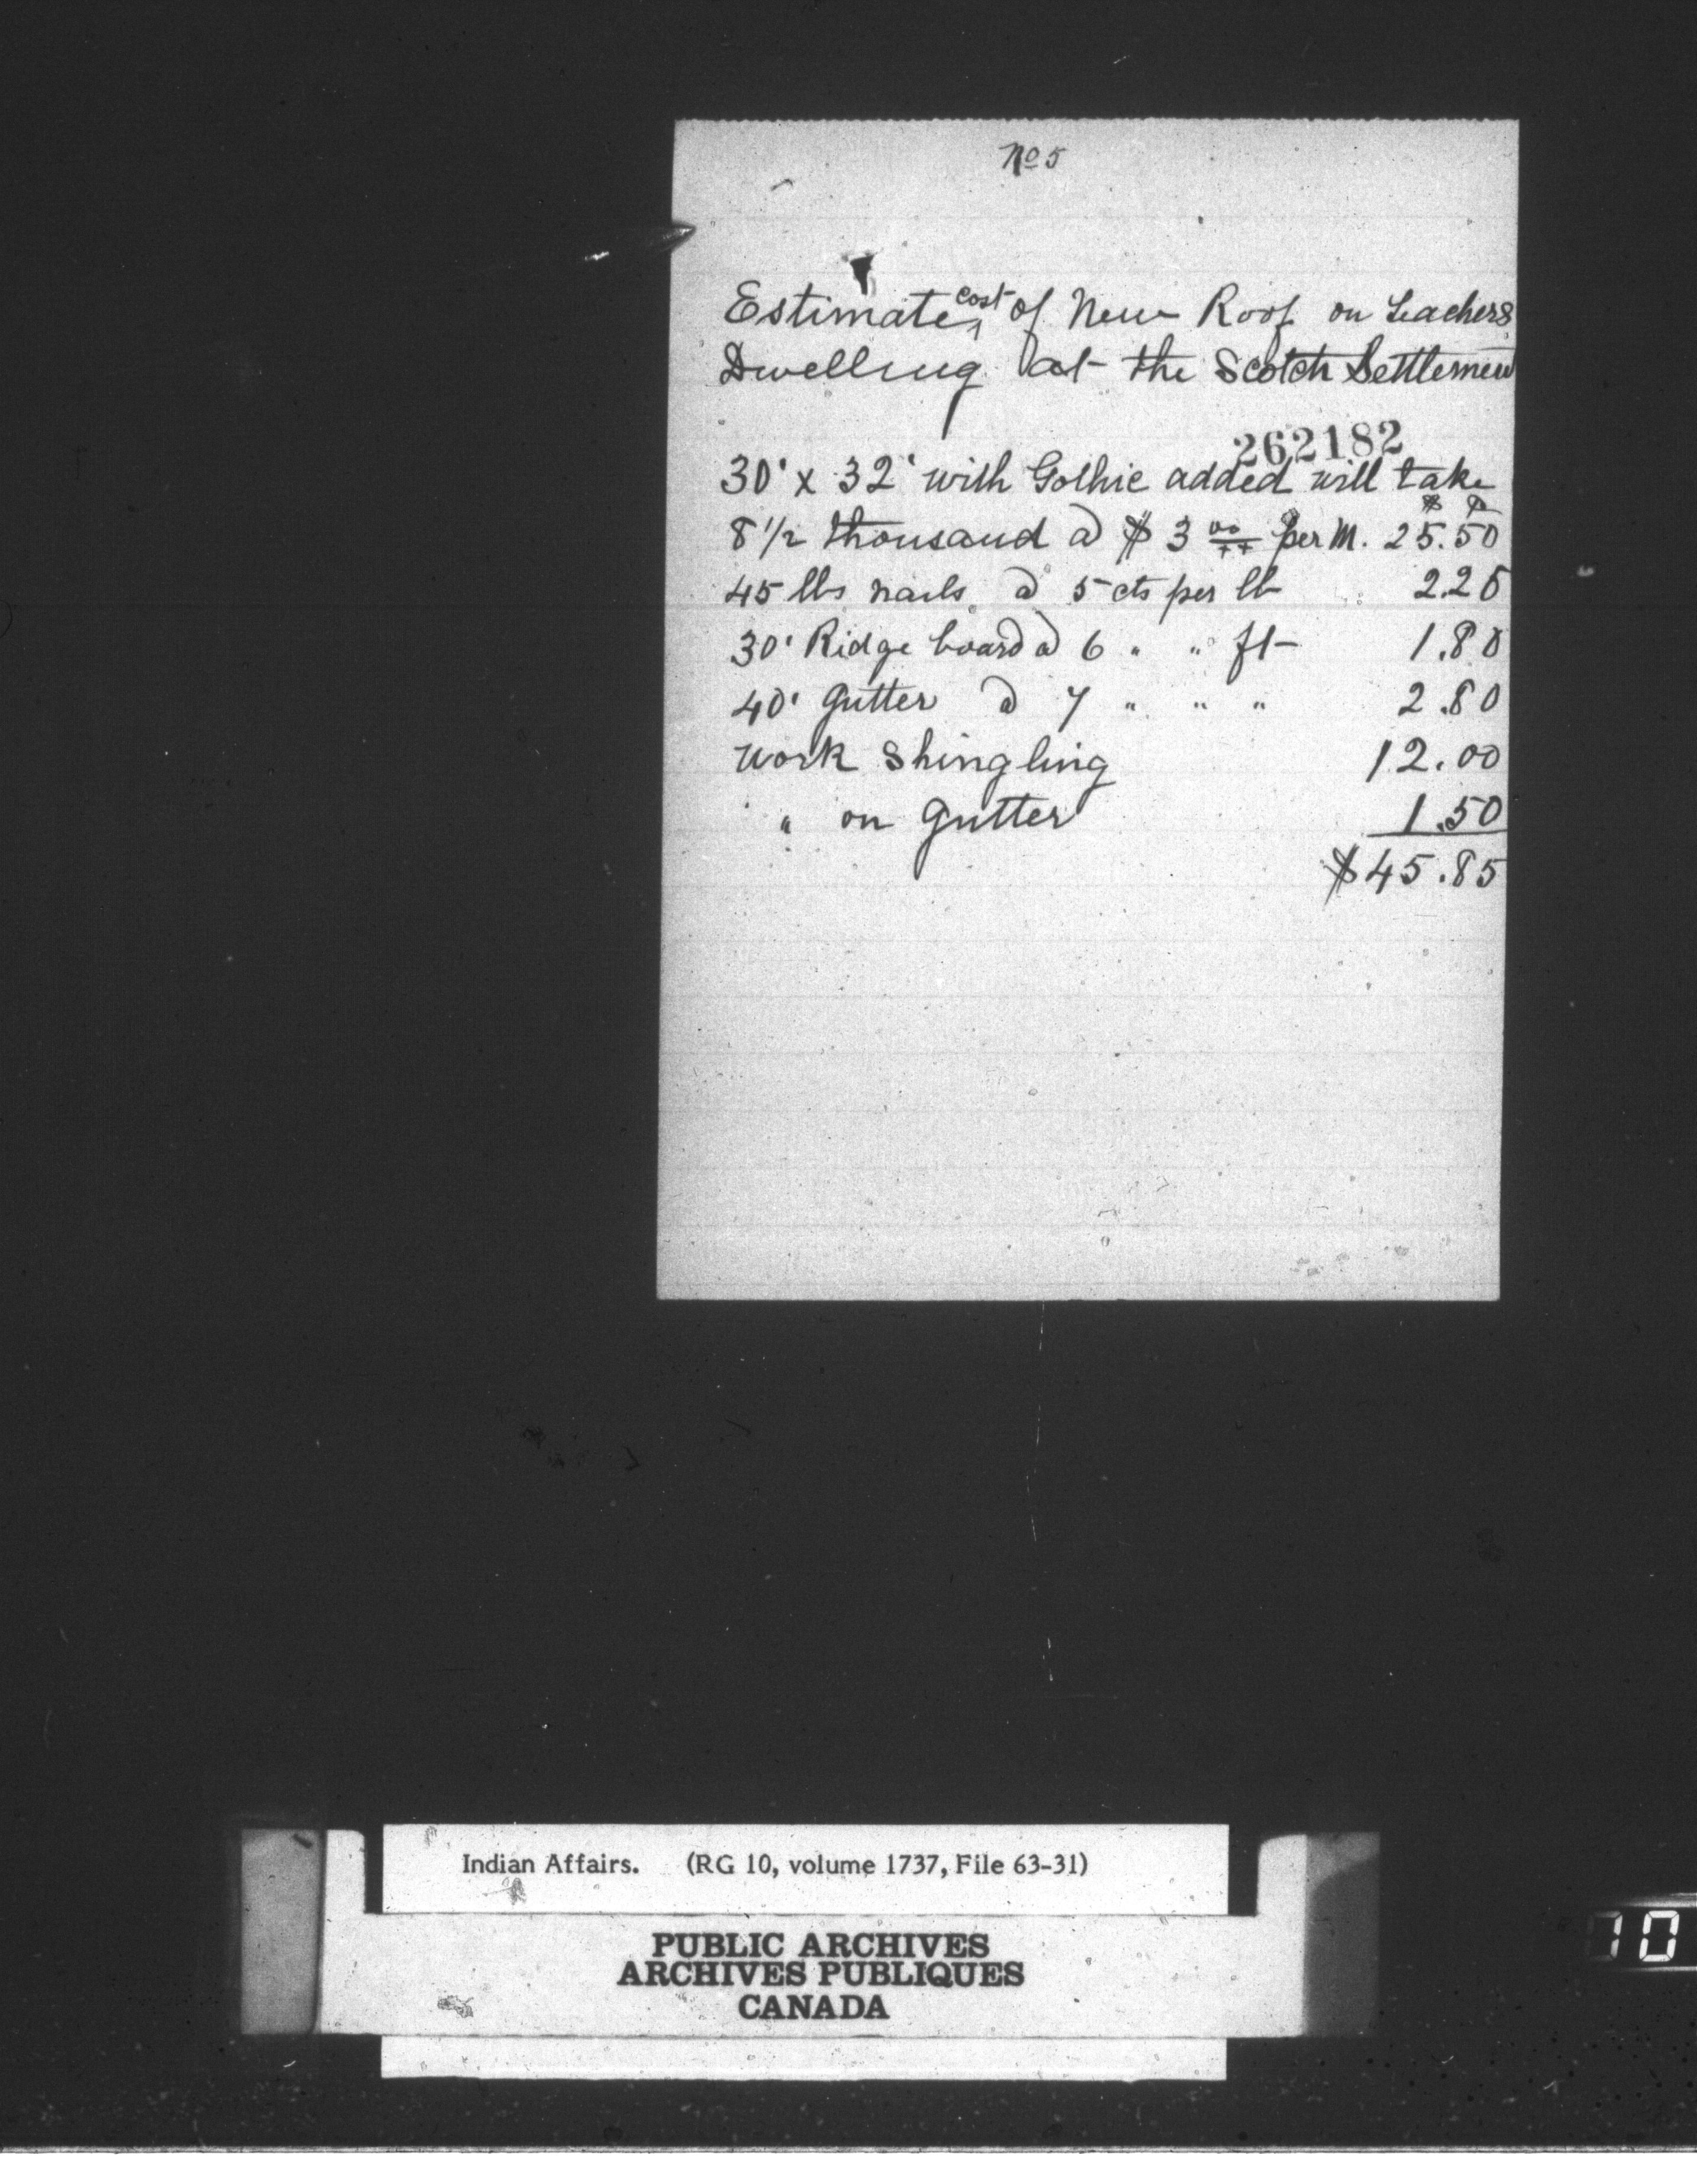 No 5
Estimate cost of New Roof on Teachers
Dwelling at the Scotch Settlemen
262182
30' x 32' with Gothic added will take
8 1/2 thousand @ $ 3 00/xx per M. 25.50
45 lbs nails @ 5 cts per lb 2.25
30' Ridge board @ 6 " " ft 1.80
40' Gutter @ 7 " " " 2.80
Work Shingling 12.00
" on Gutter 1.50
$45.85
Indian Affairs. (RG 10, volume 1737, File 63-31)
PUBLIC ARCHIVES
ARCHIVES PUBLIQUES
CANADA
10